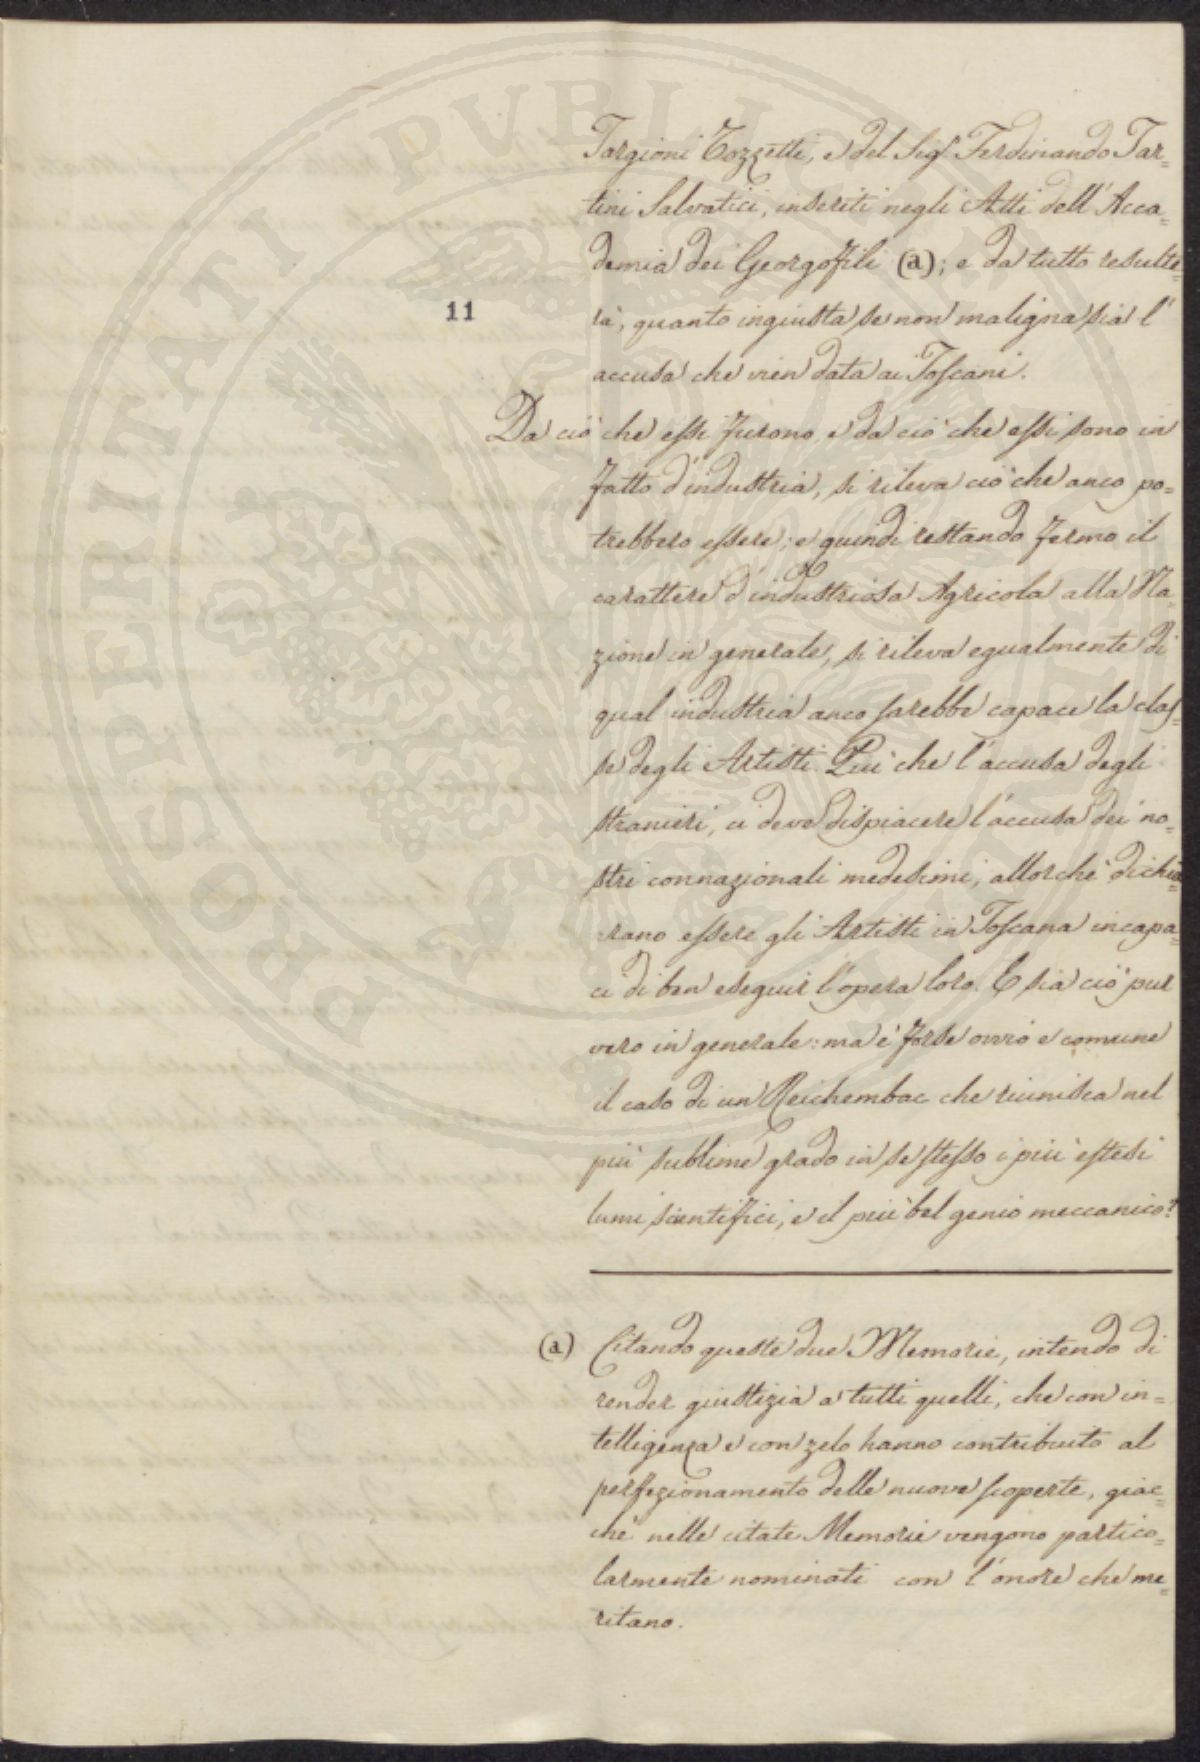 Targioni Tozzetti, e del Sig.r Ferdinando Tar=
tini Salvatici, inseriti negli Atti dell'Acca=
demia dei Georgofili (a); e da tutto resulte=
rà, quanto ingiusta se non maligna sia l'
11
accusa che vien data ai Toscani.
Da ciò che essi furono, e da ciò che essi sono in
fatto d'industria, si rileva ciò che anco po=
trebbero essere; e quindi restando fermo il
carattere d'industriosa Agricola alla Na=
zione in generale, si rileva egualmente di
qual industria anco sarebbe capace la clas=
se degli Artisti. Più che l'accusa degli
stranieri, ci deve dispiacere l'accusa dei no=
stri connazionali medesimi, allorchè dichia=
rano essere gli Artisti in Toscana incapa=
ci di ben eseguir l'opera loro. E sia ciò pur
vero in generale: ma è forse ovvio e comune
il caso di un Reichembac che riunisca nel
più sublime grado in se stesso i più estesi
lumi scientifici, e il più bel genio meccanico?
(a) Citando queste due Memorie, intendo di
render giustizia a tutti quelli, che con in=
telligenza e con zelo hanno contribuito al
perfezionamento delle nuove scoperte, giac=
chè nelle citate Memorie vengono partico=
larmente nominati con l'onore che me=
ritano.
PROSPERITATI PUBLICAE